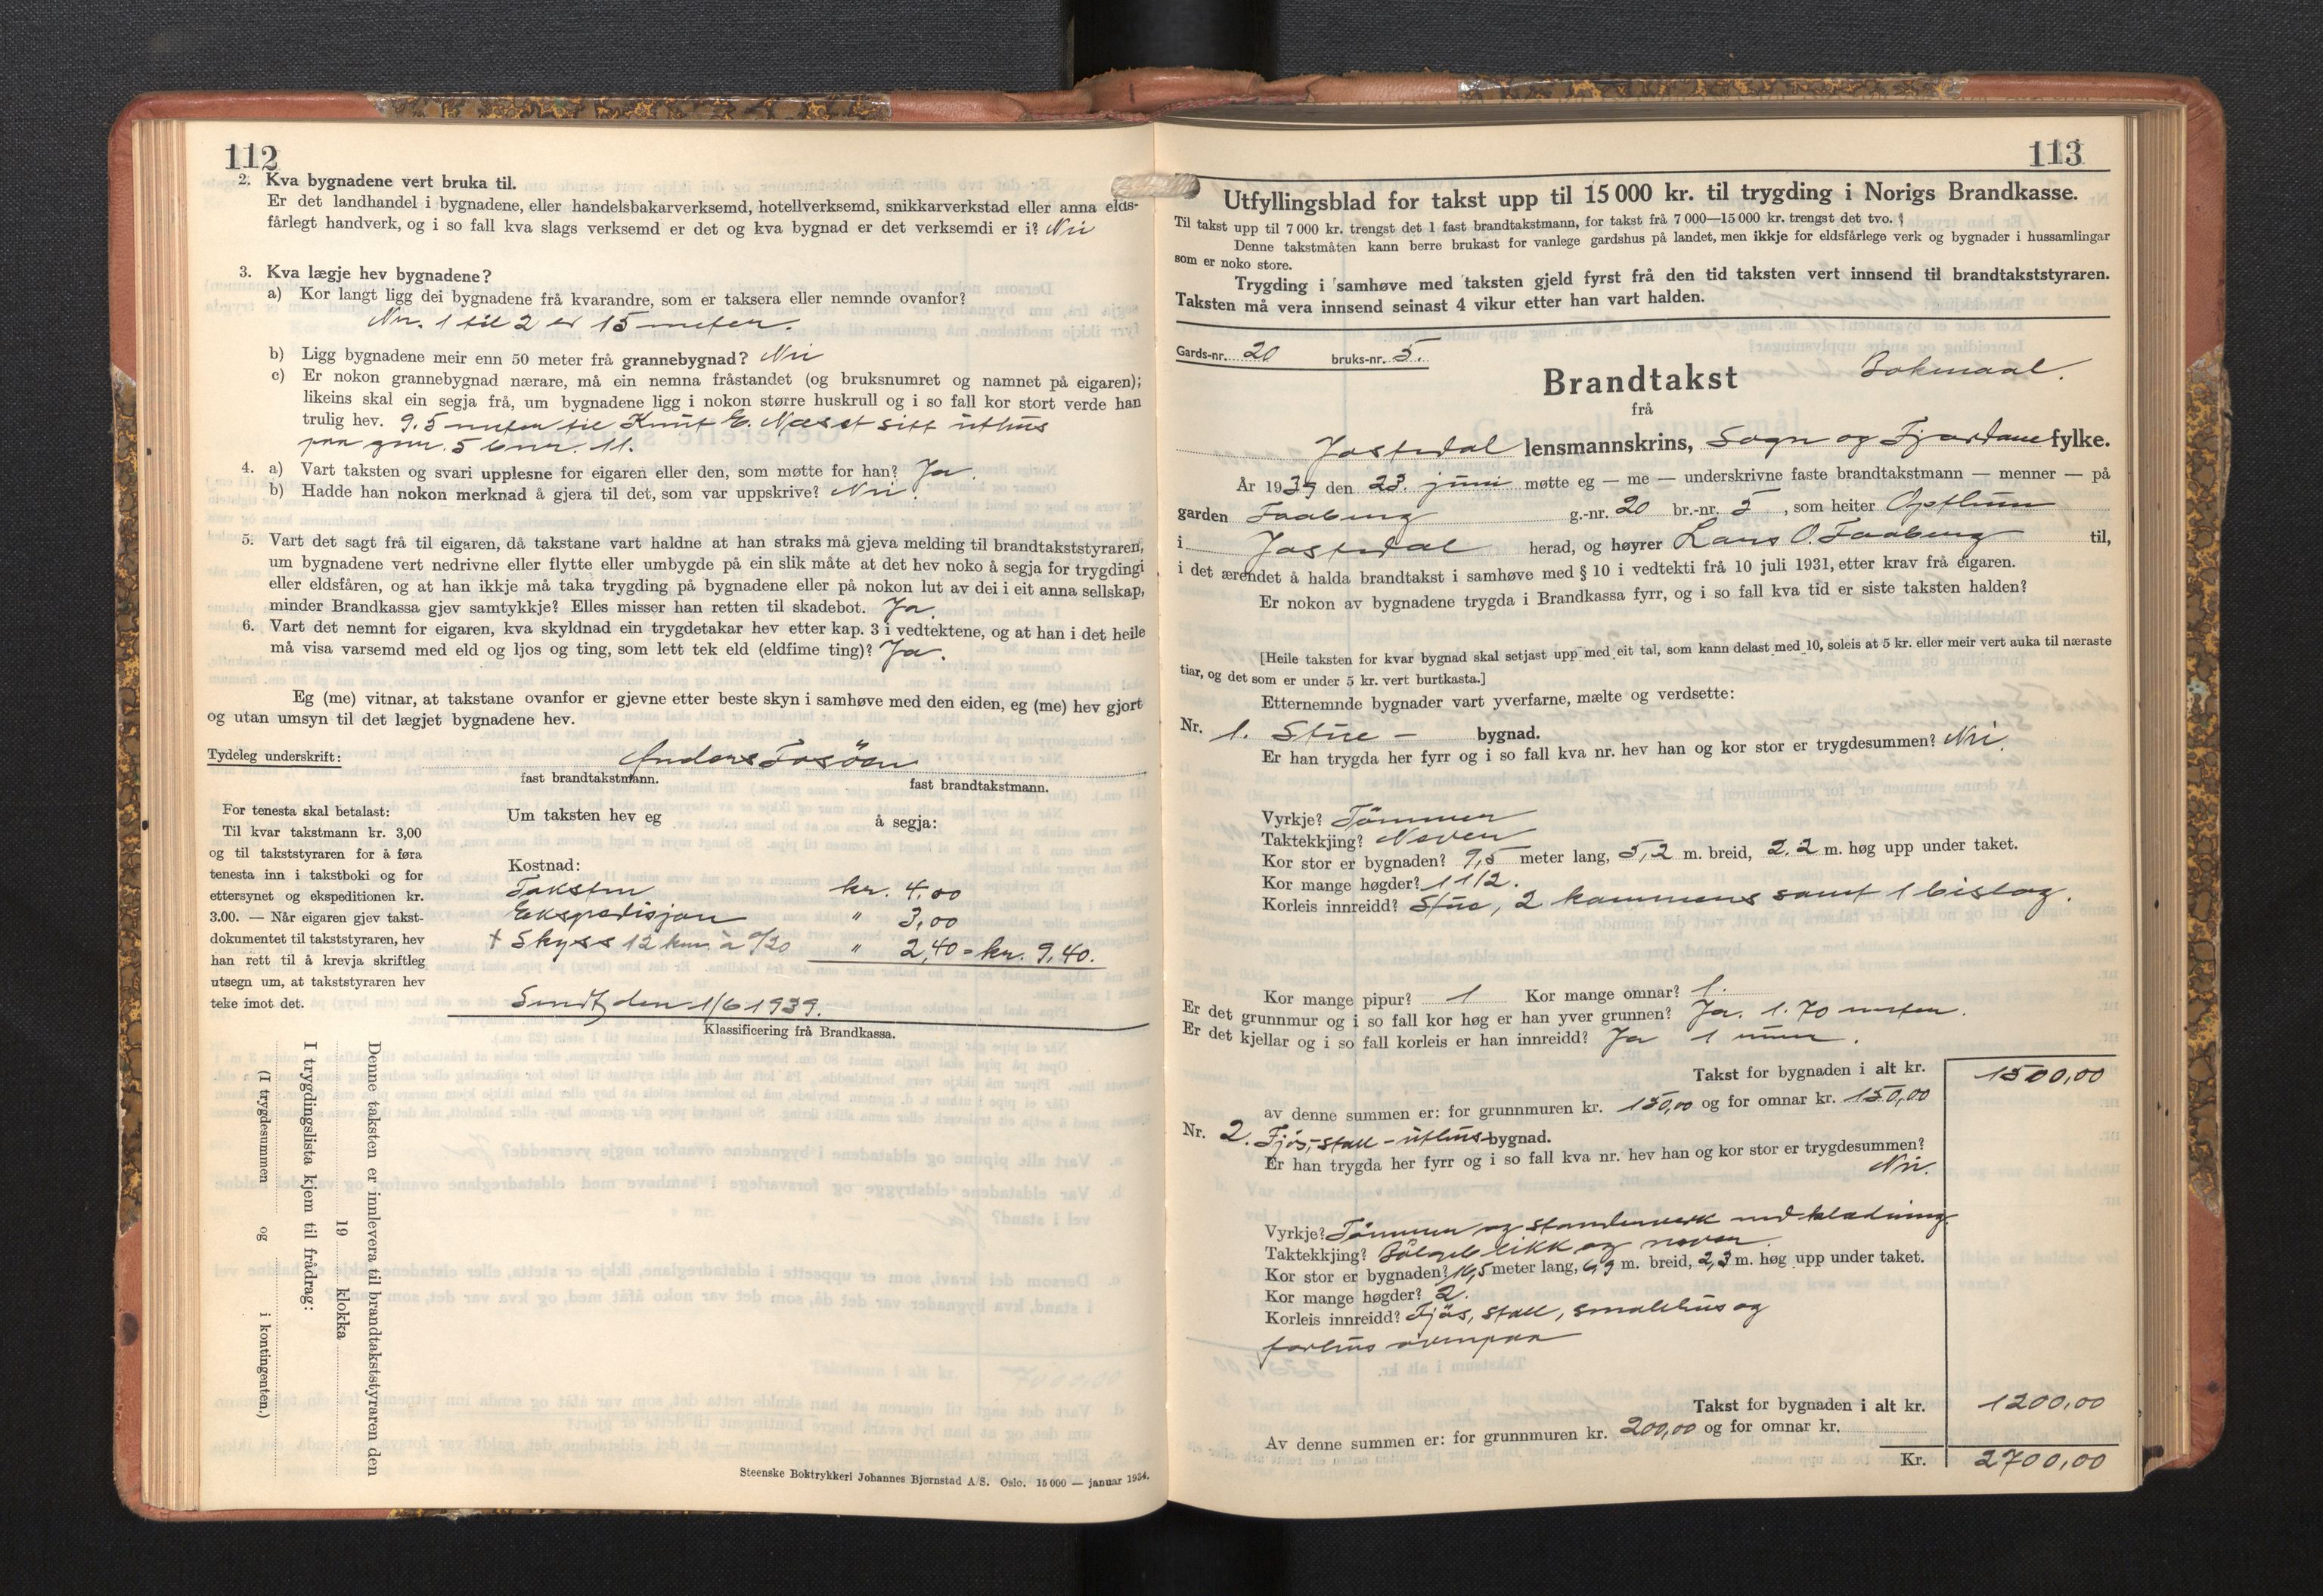 112
2. Kva bygnadene vert bruka til.
Er det landhandel i bygnadene, eller handelsbakarverksemd, hotellverksemd, snikkarverkstad eller anna elds-
fårlegt handverk, og i so fall kva slags verksemd er det og kva bygnad er det verksemdi er i? Nei
3. Kva lægje hev bygnadene?
a) Kor langt ligg dei bygnadene frå kvarandre, som er taksera eller nemnde ovanfor?
Nr. 1 til 2 er 15 meter.
b) Ligg bygnadene meir enn 50 meter frå grannebygnad? Nei
c) Er nokon grannebygnad nærare, må ein nemna fråstandet (og bruksnumret og namnet på eigaren);
likeins skal ein segja frå, um bygnadene ligg i nokon større huskrull og i so fall kor stort verde han
trulig hev. 9.5 meter til Knut E. Næset sitt uthus
paa gnr. 5 bnr. 11.
4. a) Vart taksten og svari upplesne for eigaren eller den, som møtte for han? Ja
b) Hadde han nokon merknad å gjera til det, som var uppskrive? Nei.
5. Vart det sagt frå til eigaren, då takstane vart haldne at han straks må gjeva melding til brandtakststyraren,
um bygnadene vert nedrivne eller flytte eller umbygde på ein slik måte at det hev noko å segja for trygdingi
eller eldsfåren, og at han ikkje må taka trygding på bygnadene eller på nokon lut av dei i eit anna sellskap,
minder Brandkassa gjev samtykkje? Elles misser han retten til skadebot. Ja.
6. Vart det nemnt for eigaren, kva skyldnad ein trygdetakar hev etter kap. 3 i vedtektene, og at han i det heile
må visa varsemd med eld og ljos og ting, som lett tek eld (eldfime ting)? Ja.
Eg (me) vitnar, at takstane ovanfor er gjevne etter beste skyn i samhøve med den eiden, eg (me) hev gjort
og utan umsyn til det lægjet bygnadene hev.
Tydeleg underskrift: Anders Fosöen
fast brandtakstmann. fast brandtakstmann.
For tenesta skal betalast:
Til kvar takstmann kr. 3,00
og til takststyraren for å føra
tenesta inn i takstboki og for
ettersynet og ekspeditionen kr.
3.00. — Når eigaren gjev takst-
dokumentet til takststyraren, hev
han rett til å krevja skriftleg
utsegn um, at takststyraren hev
teke imot det.
Um taksten hev eg å segja:
Kostnad:
Taksten kr. 4.00
Ekspedisjon " 3,00
+ Skyss 12 km. à 0/20 " 2,40 = kr. 9,40.
Sendt den 1/6 1939.
Klassificering frå Brandkassa.
Denne taksten er innlevera til brandtakststyraren den
19 klokka
I trygdingslista kjem til frådrag:
(I trygdesummen og i kontingenten.)
Steenske Boktrykkeri Johannes Bjørnstad A/S. Oslo. 15 000 — januar 1934.
113
Utfyllingsblad for takst upp til 15 000 kr. til trygding i Norigs Brandkasse.
Til takst upp til 7 000 kr. trengst det 1 fast brandtakstmann, for takst frå 7 000—15 000 kr. trengst det tvo.
Denne takstmåten kann berre brukast for vanlege gardshus på landet, men ikkje for eldsfårlege verk og bygnader i hussamlingar
som er noko store.
Trygding i samhøve med taksten gjeld fyrst frå den tid taksten vert innsend til brandtakststyraren.
Taksten må vera innsend seinast 4 vikur etter han vart halden.
Gards-nr. 20 bruks-nr. 5.
Brandtakst Bokmaal.
frå
Jostedal lensmannskrins, Sogn og Fjordane fylke.
År 1939 den 23. juni møtte eg — me — underskrivne faste brandtakstmann — menner — på
garden Faaberg g.-nr. 20 br.-nr. 5, som heiter Opthun
i Jostedal herad, og høyrer Lars O. Faaberg til,
i det ærendet å halda brandtakst i samhøve med § 10 i vedtekti frå 10 juli 1931, etter krav frå eigaren.
Er nokon av bygnadene trygda i Brandkassa fyrr, og i so fall kva tid er siste taksten halden?
[Heile taksten for kvar bygnad skal setjast upp med eit tal, som kann delast med 10, soleis at 5 kr. eller meir vert auka til næraste
tiar, og det som er under 5 kr. vert burtkasta.]
Etternemnde bygnader vart yverfarne, mælte og verdsette:
Nr. 1. Stue - bygnad.
Er han trygda her fyrr og i so fall kva nr. hev han og kor stor er trygdesummen? Nei.
Vyrkje? Tömmer
Taktekkjing? Never
Kor stor er bygnaden? 9,5 meter lang, 5,2 m. breid, 2.2 m. høg upp under taket.
Kor mange høgder? 1 1/2.
Korleis innreidd? Stue, 2 kammers samt 1 bislag.
Kor mange pipur? 1 Kor mange omnar? 1.
Er det grunnmur og i so fall kor høg er han yver grunnen? Ja. 1.70 meter.
Er det kjellar og i so fall korleis er han innreidd? Ja 1 rum.
Takst for bygnaden i alt kr. 1500,00
av denne summen er: for grunnmuren kr. 150,00 og for omnar kr. 150,00
Nr. 2. Fjös-stall-uthus-bygnad.
Er han trygda her fyrr og i so fall kva nr. hev han og kor stor er trygdesummen?
Nei.
Vyrkje? Tömmer og standerverk med klædning.
Taktekkjing? Bölgeblikk og never.
Kor stor er bygnaden? 16,5 meter lang, 6,9 m. breid, 2,3 m. høg upp under taket.
Kor mange høgder? 2.
Korleis innreidd? Fjös, stall, smalehus og
forhus ovenpaa
Takst for bygnaden i alt kr. 1200,00
Av denne summen er: for grunnmuren kr. 200,00 og for omnar kr.
Kr. 2700,00